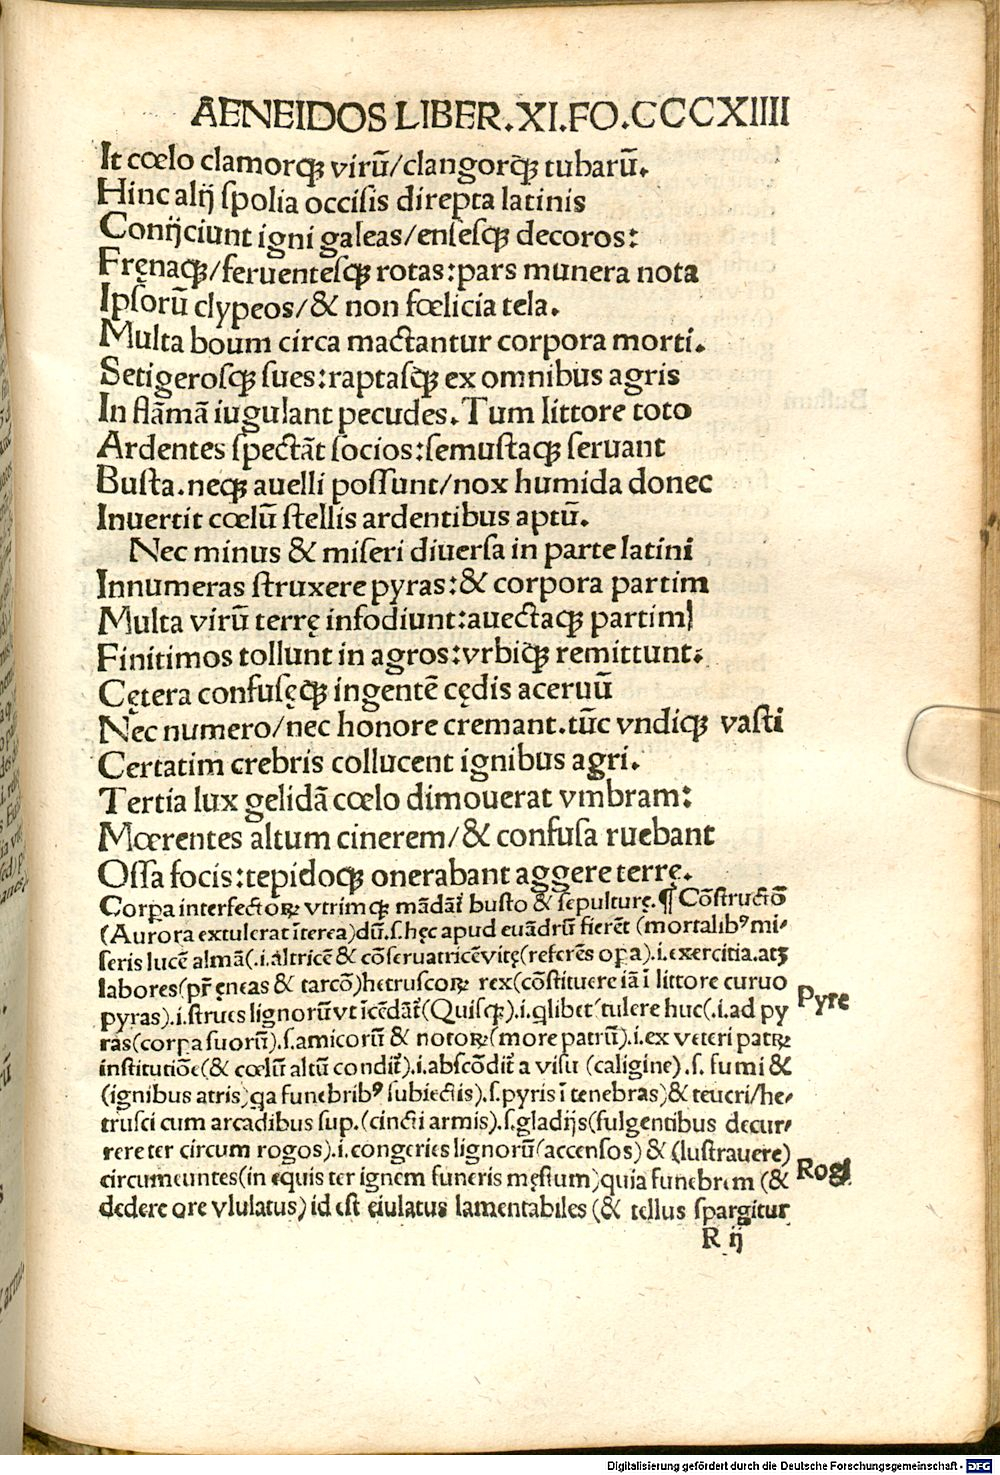 AENEIDOS LIBER.XI.FO.CCCXIIII
It cœlo clamorqꝫ virũ/clangorqꝫ tubarũ.
Hinc alij ſpolia occiſis direpta latinis
Conijciunt igni galeas/enſeſqꝫ decoros:
Fręnaqꝫ/feruenteſqꝫ rotas:pars munera nota
Ipſorũ clypeos/& non fœlicia tela.
Multa boum circa mactantur corpora morti.
Setigeroſqꝫ ſues:raptaſqꝫ ex omnibus agris
In flãmã iugulant pecudes.Tum littore toto
Ardentes ſpectãt ſocios:ſemuſtaqꝫ ſeruant
Buſta.neqꝫ auelli poſſunt/nox humida donec
Inuertit cœlũ ſtellis ardentibus aptũ.
Nec minus & miſeri diuerſa in parte latini
Innumeras ſtruxere pyras:& corpora partim
Multa virũ terrę infodiunt:auectaqꝫ partim
Finitimos tollunt in agros:vrbiqꝫ remittunt.
Cętera confuſęqꝫ ingentẽ cędis aceruũ
Nec numero/nec honore cremant.tũc vndiqꝫ vaſti
Certatim crebris collucent ignibus agri.
Tertia lux gelidã cœlo dimouerat vmbram:
Mœrentes altum cinerem/& confuſa ruebant
Oſſa focis:tepidoqꝫ onerabant aggere terrę.
Corꝑa interfectoꝝ vtrimqꝫ mãdãt᷑ buſto & ſepulturę.¶ Cõſtructiõ
(Aurora extulerat ĩterea)dũ.ſ.hęc apud euãdrũ fierẽt (mortalibꝰ mi⸗
ſeris lucẽ almã(.i.altricẽ & cõſeruatricẽ vitę(referẽs oꝑa).i.exercitia.atqꝫ
labores(pr̃ ęneas & tarcõ)hetruſcoꝝ rex(cõſtituere iã ĩ littore curuo
pyras).i.ſtrues lignorũ vt ĩcẽdãt᷑(Quiſqꝫ).i.qlibet(tulere huc(.i.ad py
ras(corꝑa ſuorũ).ſ.amicorũ & notoꝝ(more patrũ).i.ex veteri patꝝ
inſtitutiõe(& cœlũ altũ condit᷑).i.abſcõdit᷑ a viſu (caligine).ſ. fumi &
(ignibus atris)qa funebribꝰ ſubiectis).ſ.pyris ĩ tenebras)& teucri/he⸗
truſci cum arcadibus ſup.(cincti armis).ſ.gladijs(fulgentibus decur⸗
rere ter circum rogos).i.congeries lignorũ(accenſos) & (luſtrauere)
circumeuntes(in equis ter ignem funeris męſtum)quia funebrem (&
dedere ore vlulatus) id eſt eiulatus lamentabiles (& tellus ſpargitur
Pyre
Rogi
R ij
Digitalisierung gefördert durch die Deutsche Forschungsgemeinschaft - DFG